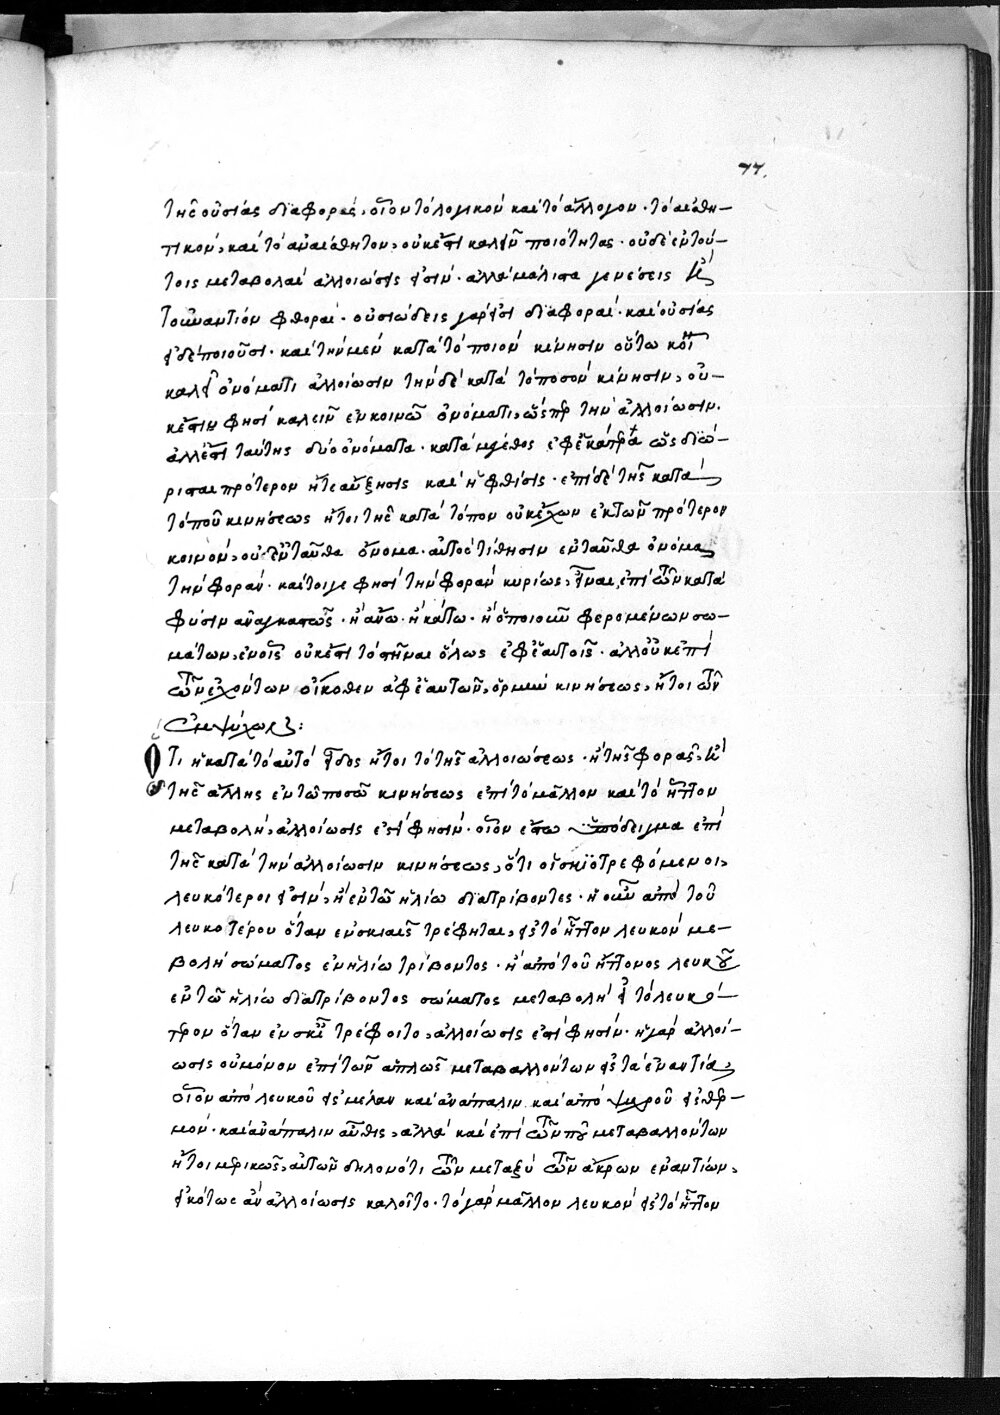 77.
τῆς οὐσίας διαφοράς, οἷον τὸ λογικὸν καὶ τὸ ἄλογον· τὸ αἰσθη-
τικὸν, καὶ τὸ ἀναίσθητον, οὐκέτι καλεῖν ποιότητας· οὐδὲ ἐν τού-
τοις μεταβολαὶ ἀλλοιώσεις εἰσίν· ἀλλὰ μάλιστα γενέσεις καὶ
τοὐναντίον φθοραί· οὐσιώδεις γάρ εἰσι διαφοραί· καὶ οὐσίας
εἰδοποιοῦσι· καὶ τὴν μὲν κατὰ τὸ ποιὸν κίνησιν οὕτω
καλεῖ ὀνόματι ἀλλοίωσιν τὴν δὲ κατὰ τὸ ποσὸν κίνησιν, οὐ-
κέτιν φησὶ καλεῖν ἐν κοινῷ ὀνόματι, ὥσπερ τὴν ἀλλοίωσιν.
ἀλλ' ἔστι ταύτης δύο ὀνόματα· κατὰ μέρος ἐφ' ἑκάτερα ὡς διώ-
ρισται πρότερον ἥτε αὔξησις καὶ ἡ φθίσις· ἐπὶ δὲ τῆς κατὰ
τὸ ποῦ κινήσεως ἤτοι τῆς κατὰ τόπον οὐκ ἔχων ἐκ τῶν πρότερον
κοινὸν, οὐδ' ἐνταῦθα ὄνομα· αὐτὸς τίθησιν ἐνταῦθα ὄνομα
τὴν φοράν· καίτοιγε φησὶ τὴν φορὰν κυρίως, εἶναι ἐπὶ τῶν κατὰ
φύσιν ἀναγκαστῶς· ἢ ἄνω· ἢ κάτω· ἢ ὁποιοῦν φερομένων σω-
μάτων, ἐν οἷς οὐκέτι τὸ στῆναι ὅλως ἐφ' ἑαυτοῖς· ἀλλ' οὐκ ἐπὶ
τῶν ἐχόντων οἴκοθεν ἀφ' ἑαυτῶν, ὁρμὴν κινήσεως, ἤτοι τῶν
ἐμψύχων:
Ὅτι ἡ κατὰ τὸ αὐτὸ εἶδος ἤτοι τὸ τῆς ἀλλοιώσεως· ἢ τῆς φορᾶς, καὶ
τῆς ἄλλης ἐν τῷ ποσῷ κινήσεως ἐπὶ τὸ μᾶλλον καὶ τὸ ἧττον
μεταβολὴ, ἀλλοίωσις ἐστὶ φησίν· οἷον ἔστω ὑπόδειγμα ἐπὶ
τῆς κατὰ τὴν ἀλλοίωσιν κινήσεως, ὅτι οἱ σκιοτρεφόμενοι,
λευκότεροι εἰσὶν, ἢ ἐν τῷ ἡλίω διατρίβοντες· ἡ οὖν ἀπὸ τοῦ
λευκοτέρου ὅταν ἐν σκιαῖς τρέφηται, εἰς τὸ ἧττον λευκὸν με-
βολὴ σώματος ἐν ἡλίω τρίβοντος· ἢ ἀπὸ τοῦ ἥττονος λευκοῦ
ἐν τῷ ἡλίω διατρίβοντος σώματος μεταβολὴ εἰς τὸ λευκό-
τερον ὅταν ἐν σκιᾷ τρέφοιτο, ἀλλοίωσις ἐστὶ φησίν· ἡ γὰρ ἀλλοί-
ωσις οὐ μόνον ἐπὶ τῶν ἁπλῶς μεταβαλλόντων εἰς τὰ ἐναντία,
οἷον ἀπὸ λευκοῦ εἰς μέλαν καὶ ἀνάπαλιν καὶ ἀπὸ ψυχροῦ εἰς θερ-
μόν· καὶ ἀνάπαλιν αὖθις, ἀλλὰ καὶ ἐπὶ τῶν πῆ μεταβαλλόντων
ἤτοι μερικῶς, αὐτῶν δηλονότι τῶν μεταξὺ τῶν ἄκρων ἐναντίων,
εἰκότως ἂν ἀλλοίωσις καλοῖτο· τὸ γὰρ μᾶλλον λευκὸν εἰς τὸ ἧττον